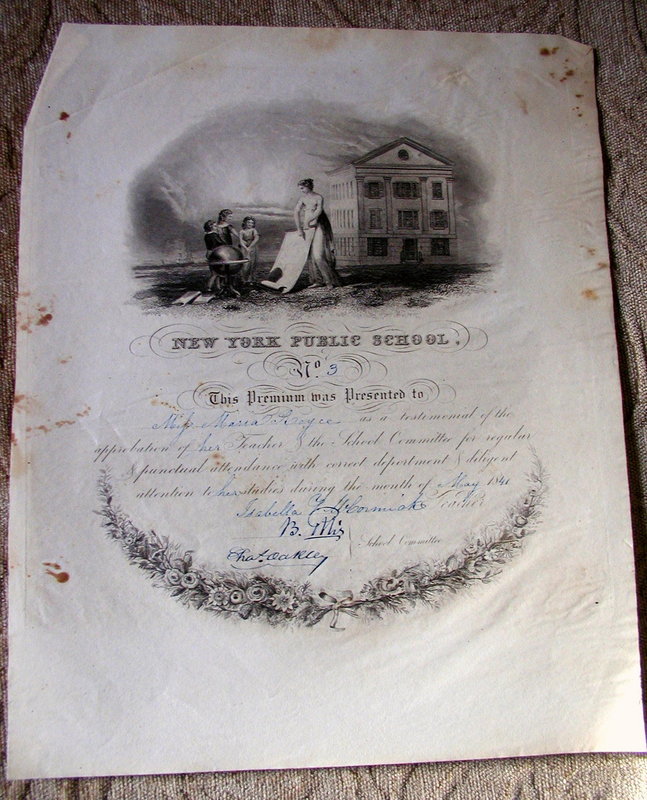 NEW YORK PUBLIC SCHOOL.
No. 3
This Premium was Presented to
Miss Maria as a testimonial of the
approbation of her Teacher & the School Committee for regular
& punctual attendance with correct deportment & diligent
attention to her studies during the month of May 1841
Isabella McCormick Teacher
B.
School Committee
Chas. Oakley